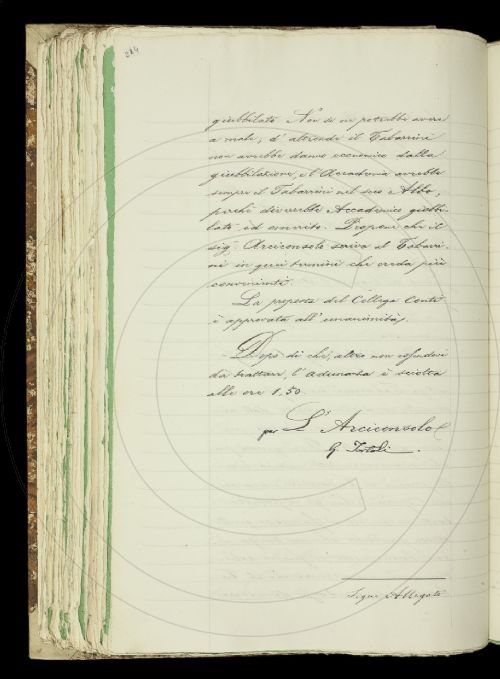 284
giubbilato. Non se ne potrebbe avere
a male; d'altronde il Tabarrini
non avrebbe danno economico dalla
giubbilazione, e l'Accademia avrebbe
sempre il Tabarrini nel suo Albo,
perchè diverrebbe Accademico giubbi-
lato ed emerito. Propone che il
sig. Arciconsolo scriva al Tabarri-
ni in quei termini che creda più
convenienti.
La proposta del Collega Conti
è approvata all'unanimità.
Dopo di che, altro non essendovi
da trattare, l'adunanza è sciolta
alle ore 1,50.
per L'Arciconsolo
G. Tortoli
Segue Allegato